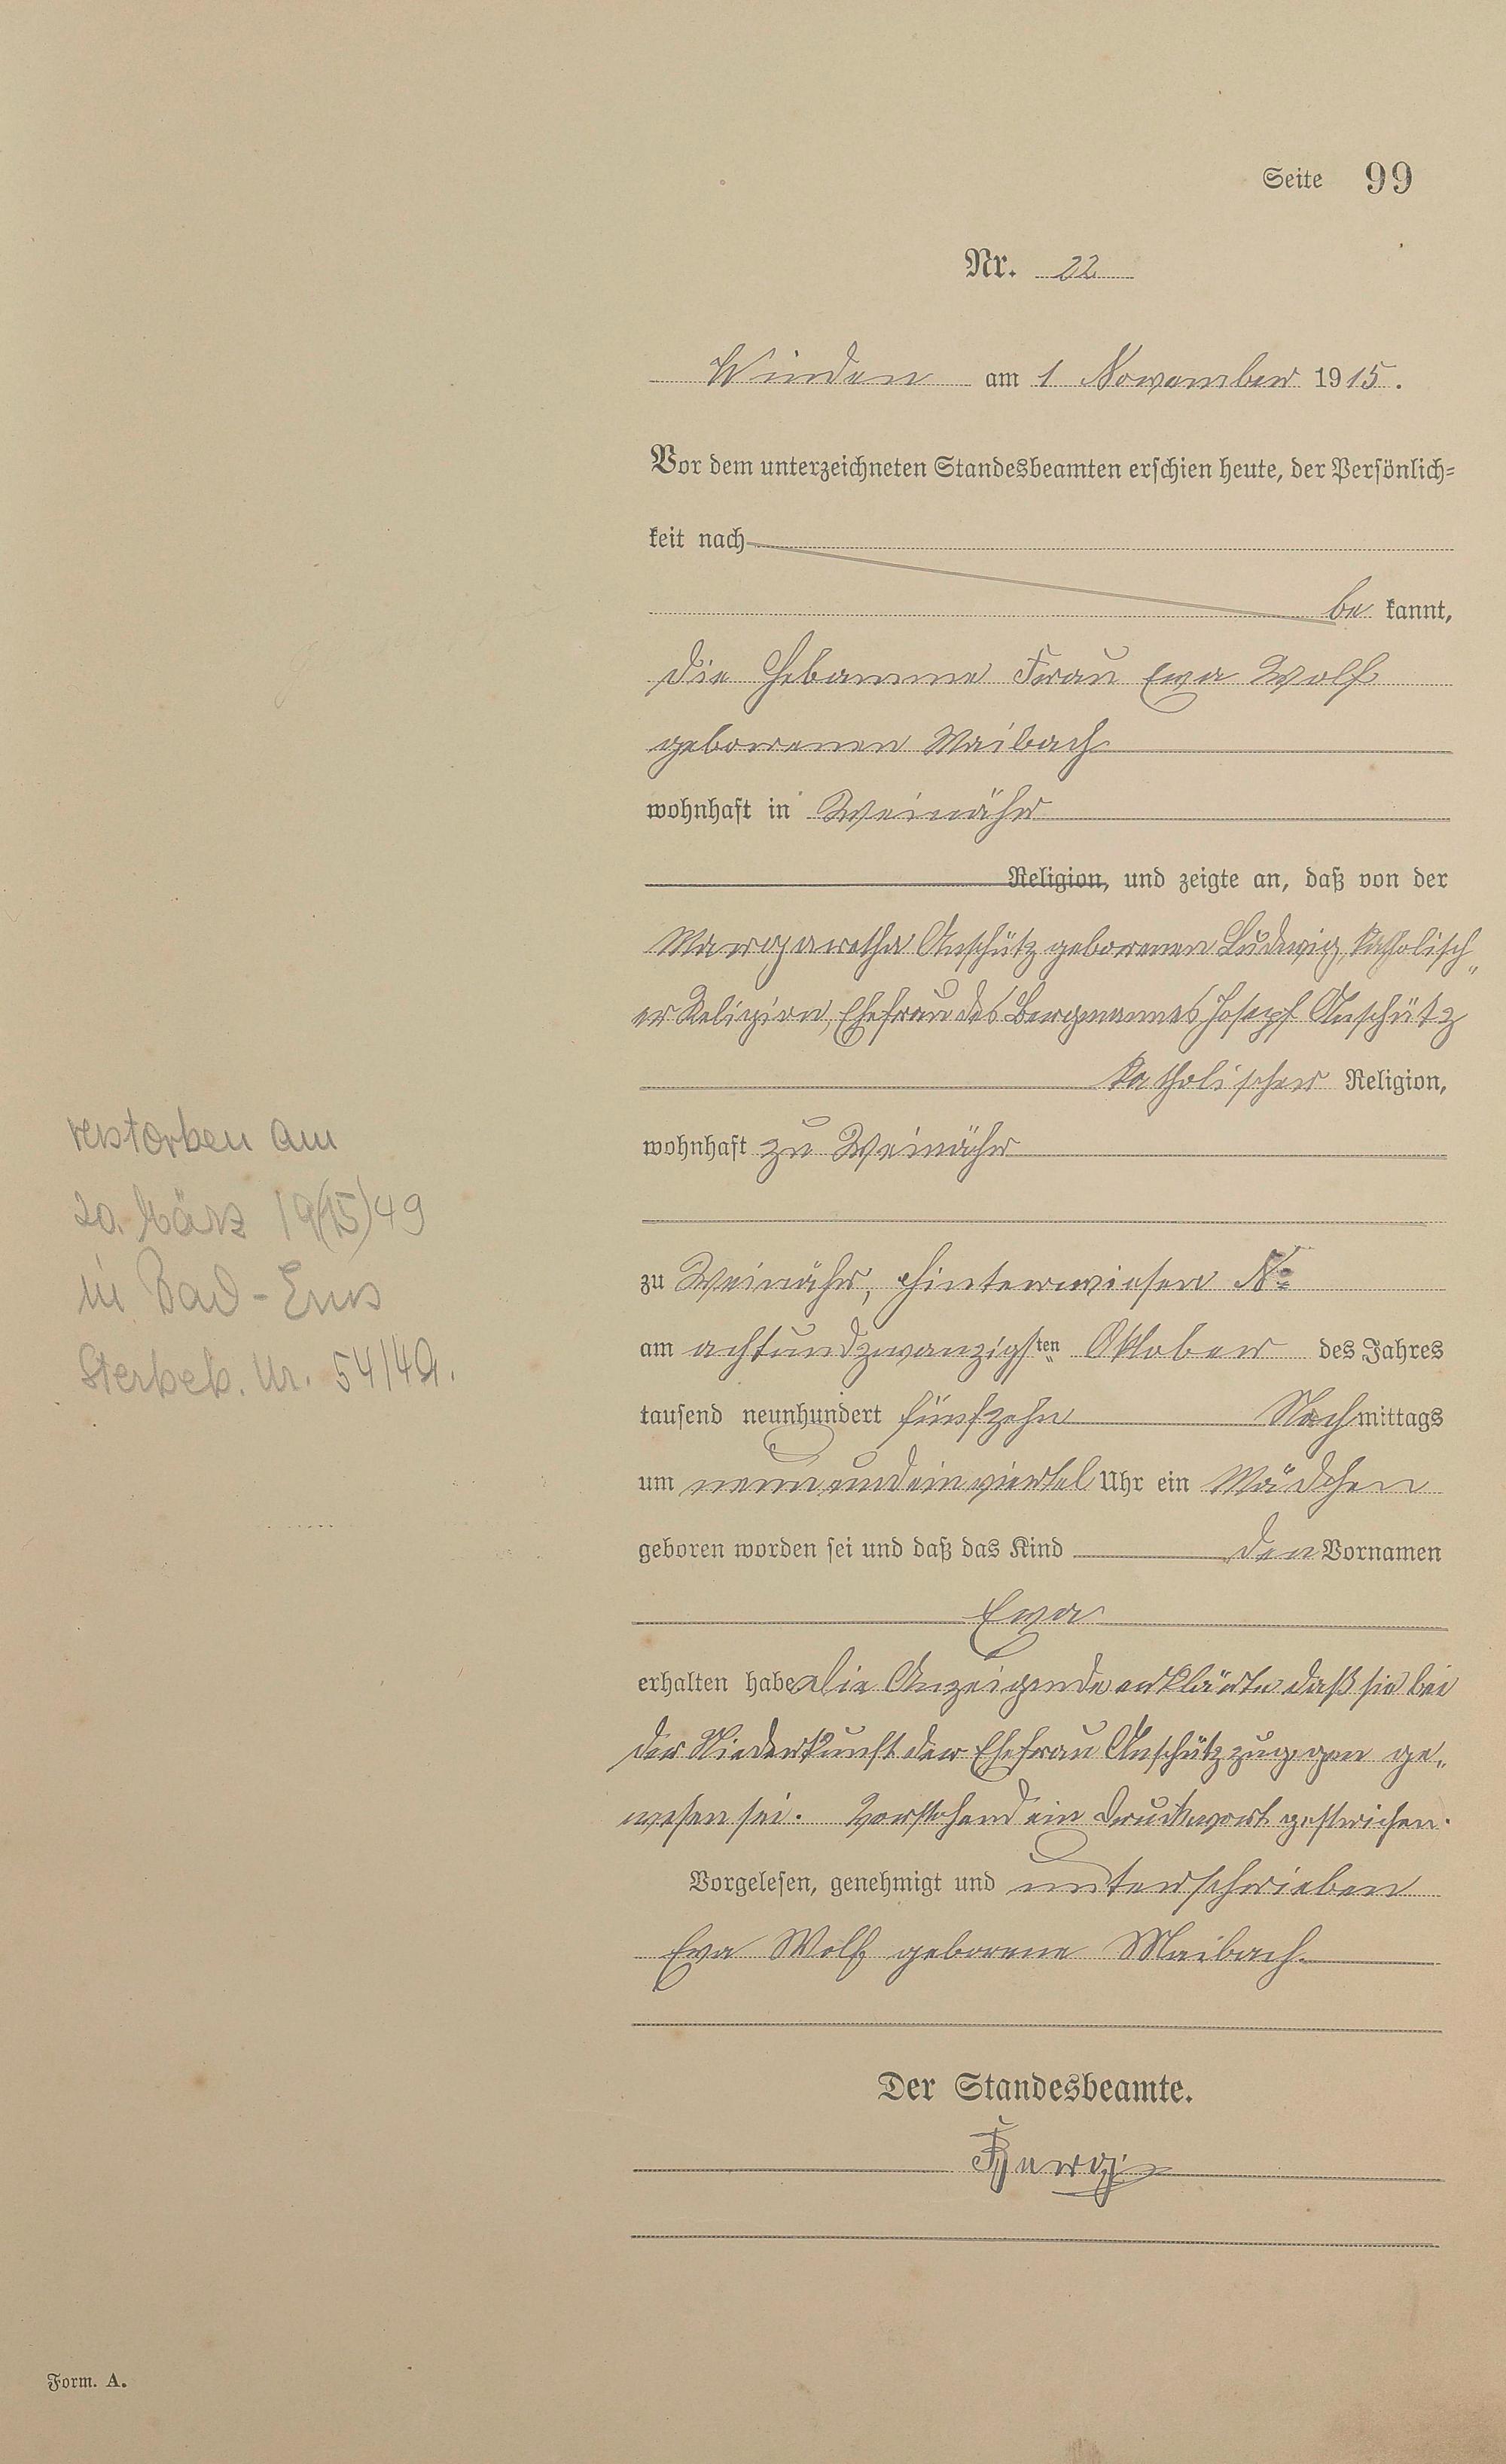 Seite 99
Nr. 22
Winden am 1 November 1915.
Vor dem unterzeichneten Standesbeamten erschien heute, der Persönlich=
keit nach
be kannt,
die Hebamme Frau Eva Wolf
geborenen Maibach
wohnhaft in Weinähr
Religion, und zeigte an, daß von der
Margaretha Anschütz geborenen Ludwig, katholisch„
er Religion, Ehefrau des Bergmannes Josepf Anschütz
katholischer Religion,
wohnhaft zu Weinähr
zu Weinähr, Hinterwiesen No
am achtundzwanzigsten Oktober des Jahres
tausend neunhundert fünfzehn Nachmittags
um neun und ein viertel Uhr ein Mädchen
geboren worden sei und daß das Kind den Vornamen
Eva
erhalten habe. Die Anzeigende erklärte daß sie bei
der Niederkunft der Ehefrau Anschütz zugegen ge„
wesen sei. Vorstehend ein Druckwort gestrichen.
Vorgelesen, genehmigt und unterschrieben
Eva Wolf geborene Maibach
Der Standesbeamte.
verstorben am
20. März 19(15)49
in Bad-Ems
Sterbeb. Nr. 54/49.
Form. A.